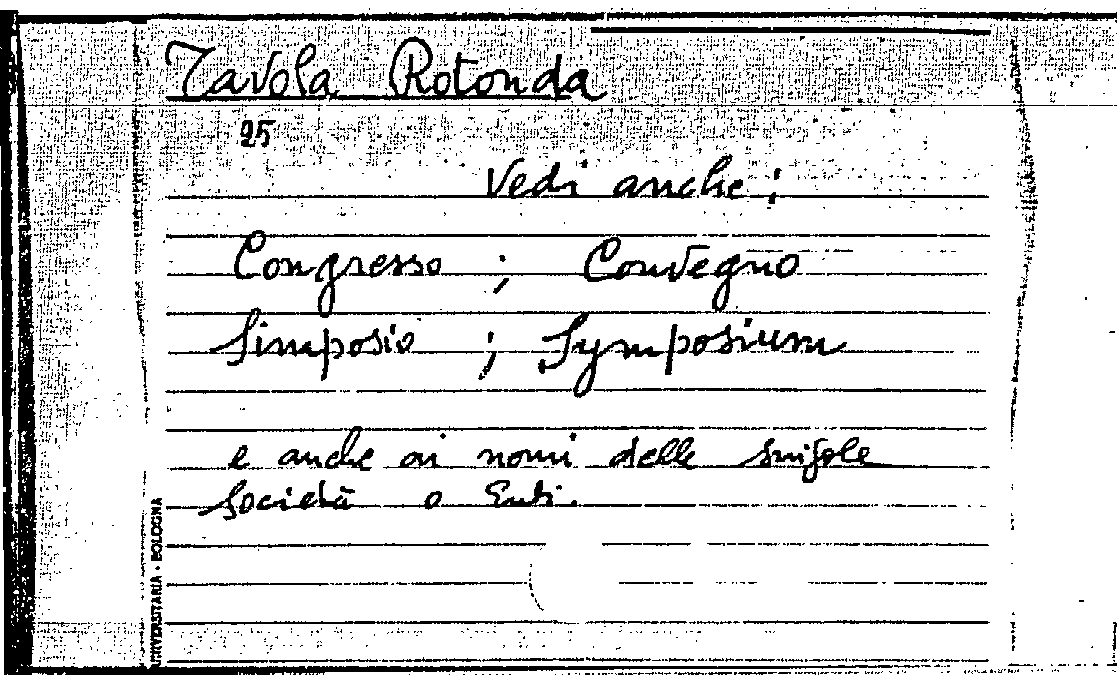 Tavola Rotonda
25
Vedi anche ;
Congresso ; Convegno
Simposio ; Symposium
e anche ai nomi delle singole
Società o Enti.
UNIVERSITARIA - BOLOGNA